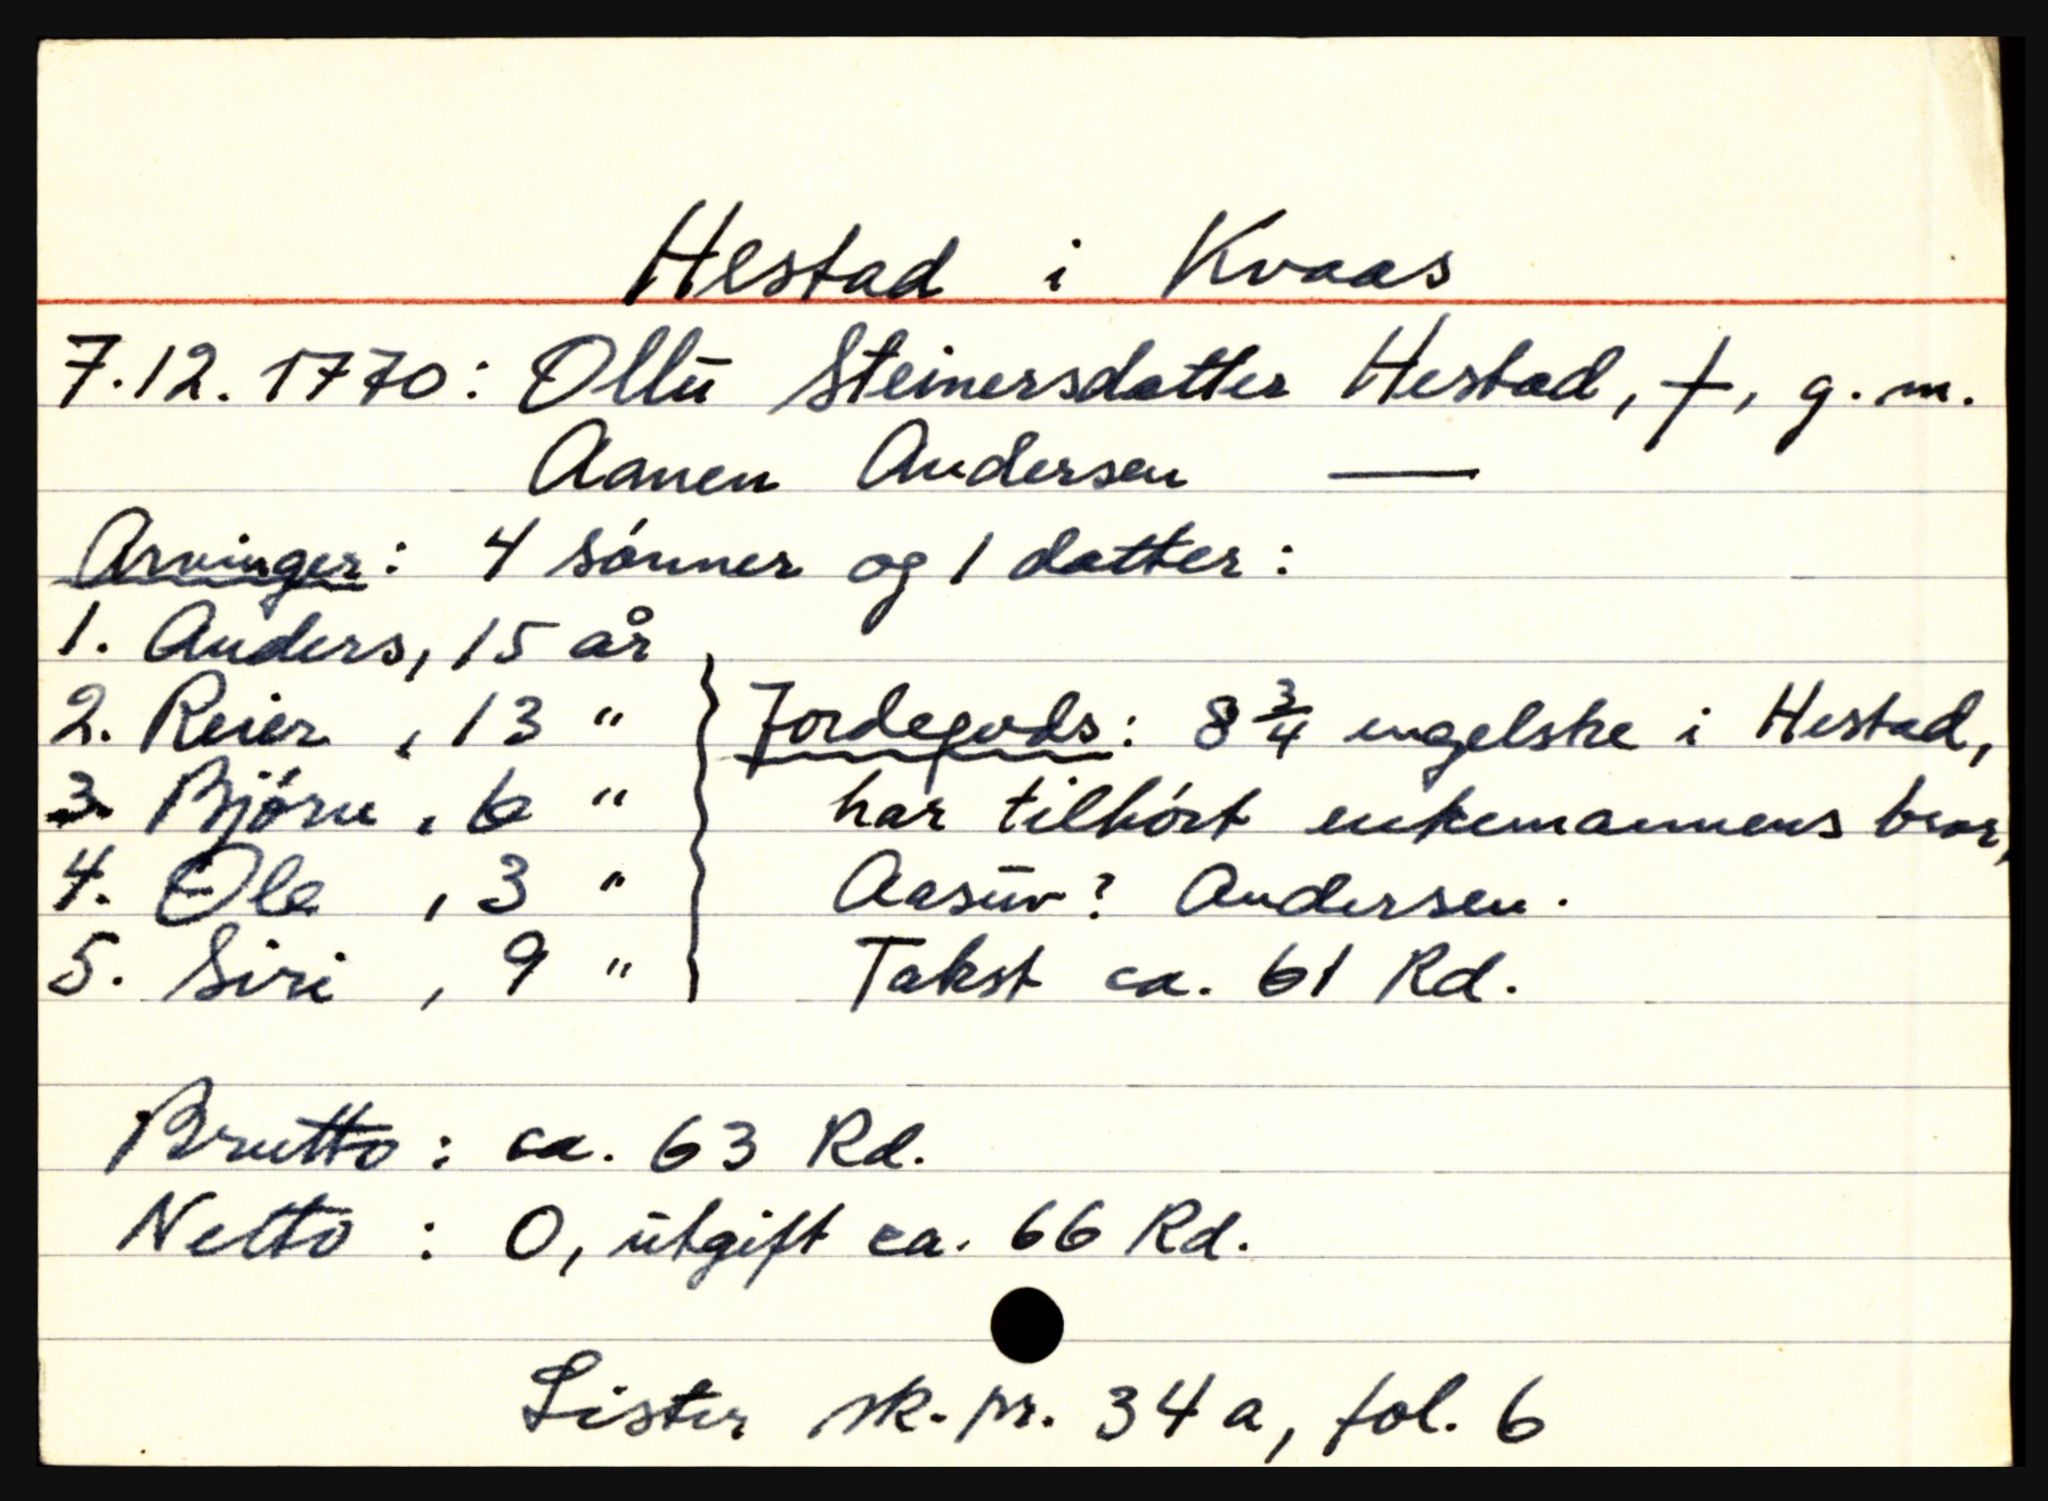 Hestad i Kvaas
7.12.1770: Ollu Steinersdatter Hestad, †, g. m.
Aanen Andersen —
Arvinger: 4 sønner og 1 datter:
1. Anders, 15 år
2. Reier, 13 "
3. Bjørn, 6 "
4. Ole, 3 "
5. Siri, 9 "
Jordegods: 8 3/4 engelske i Hestad,
har tilhørt enkemannens bror,
Aasuv? Andersen.
Takst ca. 61 Rd.
Brutto: ca. 63 Rd.
Netto: 0, utgift ca. 66 Rd.
Lister sk. pr. 34a, fol. 6